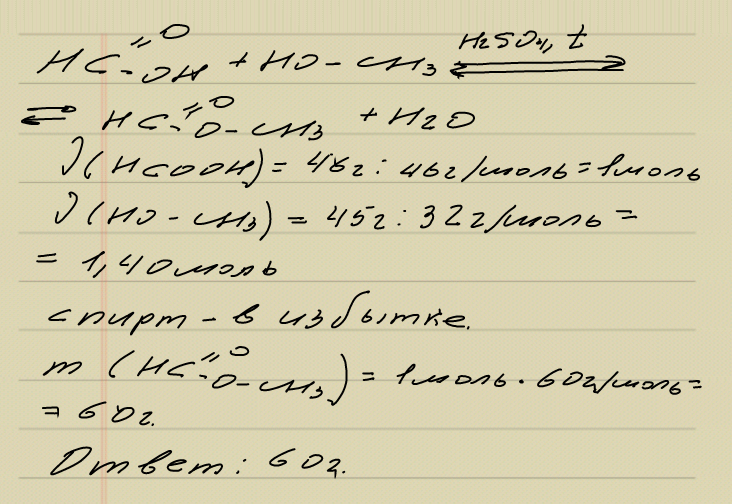 HC=O-OH + HO-CH3 ⇌ H2SO4, t
⇌ HC=O-O-CH3 + H2O
ν(HCOOH) = 46г : 46г/моль = 1моль
ν(HO-CH3) = 45г : 32г/моль =
= 1,40моль
спирт - в избытке.
m (HC=O-O-CH3) = 1моль · 60г/моль =
= 60г.
Ответ: 60г.